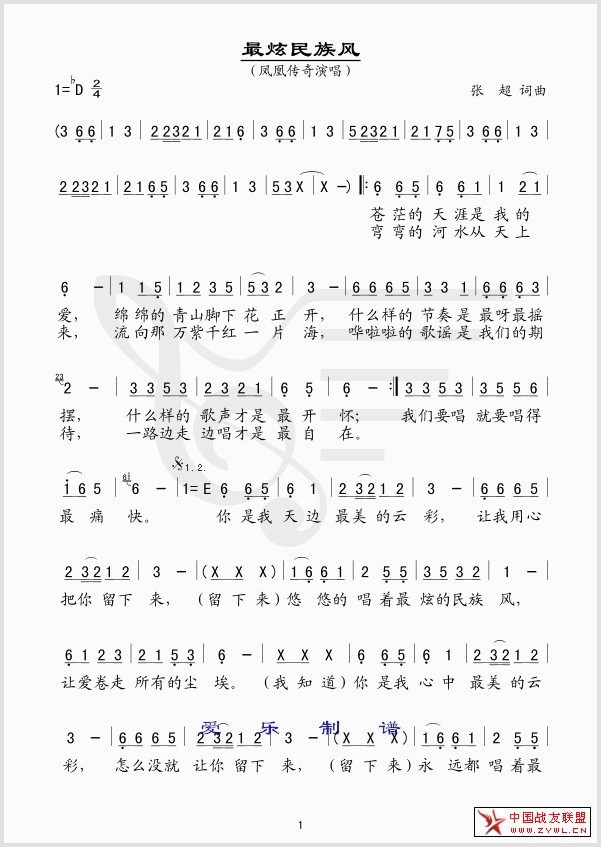 最炫民族风
（凤凰传奇演唱）
1=♭D 2/4
张 超 词曲
(3 6 6 | 1 3 | 2 2321 | 2 1 6 | 3 6 6 | 1 3 | 5 2321 | 2 1 7 5 | 3 6 6 | 1 3 |
2 2321 | 2 1 6 5 | 3 6 6 | 1 3 | 5 5 3 X | X -) ‖: 6 6 5 | 6 6 1 | 1 2 1 |
苍 茫的 天 涯是 我 的
弯 弯的 河 水从 天 上
6 - | 1 1 5 | 1 2 3 5 | 5 3 2 | 3 - | 3 5 3 5 | 6 1 6 | 6 6 6 3 |
爱， 绵 绵的 青山脚下 花 正 开， 什么样的 节奏是 最呀最摇
来， 流 向那 万紫千红 一 片 海， 哗啦啦的 歌谣是 我们的期
23
2 - | 3 3 5 3 | 2 3 2 1 | 6 5 | 6 - :‖ 3 3 5 3 | 3 5 5 6 |
摆， 什么样的 歌声才是 最 开 怀； 我们要唱 就要唱得
待， 一路边走 边唱才是 最 自 在。
1.2.
i 6 5 | 6 - | 1=E 6 6 5 | 6 5 | 2 3212 | 3 - | 6 6 6 5 |
最 痛 快。 你 是我 天 边 最 美的云 彩， 让我用心
2 3212 | 3 - | (X X X) | 1 6 6 1 | 6 6 5 | 3 5 3 2 | 1 - |
把你 留下 来， （留 下 来）悠 悠的 唱 着最 炫的民族 风，
6 1 2 3 | 2 1 5 3 | 6 - | (X X X) | 6 6 5 | 6 5 | 2 3 2 1 2 |
让爱卷走 所有的尘 埃。（我 知 道）你 是我 心 中 最美的云
3 - | 6 6 6 5 | 2 3212 | 3 - | (X X X) | 6 6 5 | 6 5 5 |
彩， 怎么没就 让你 留下 来，（留 下 来）永 远都 唱 着最
爱 乐 制 谱
1
中国战友联盟
WWW.ZYWL.CN